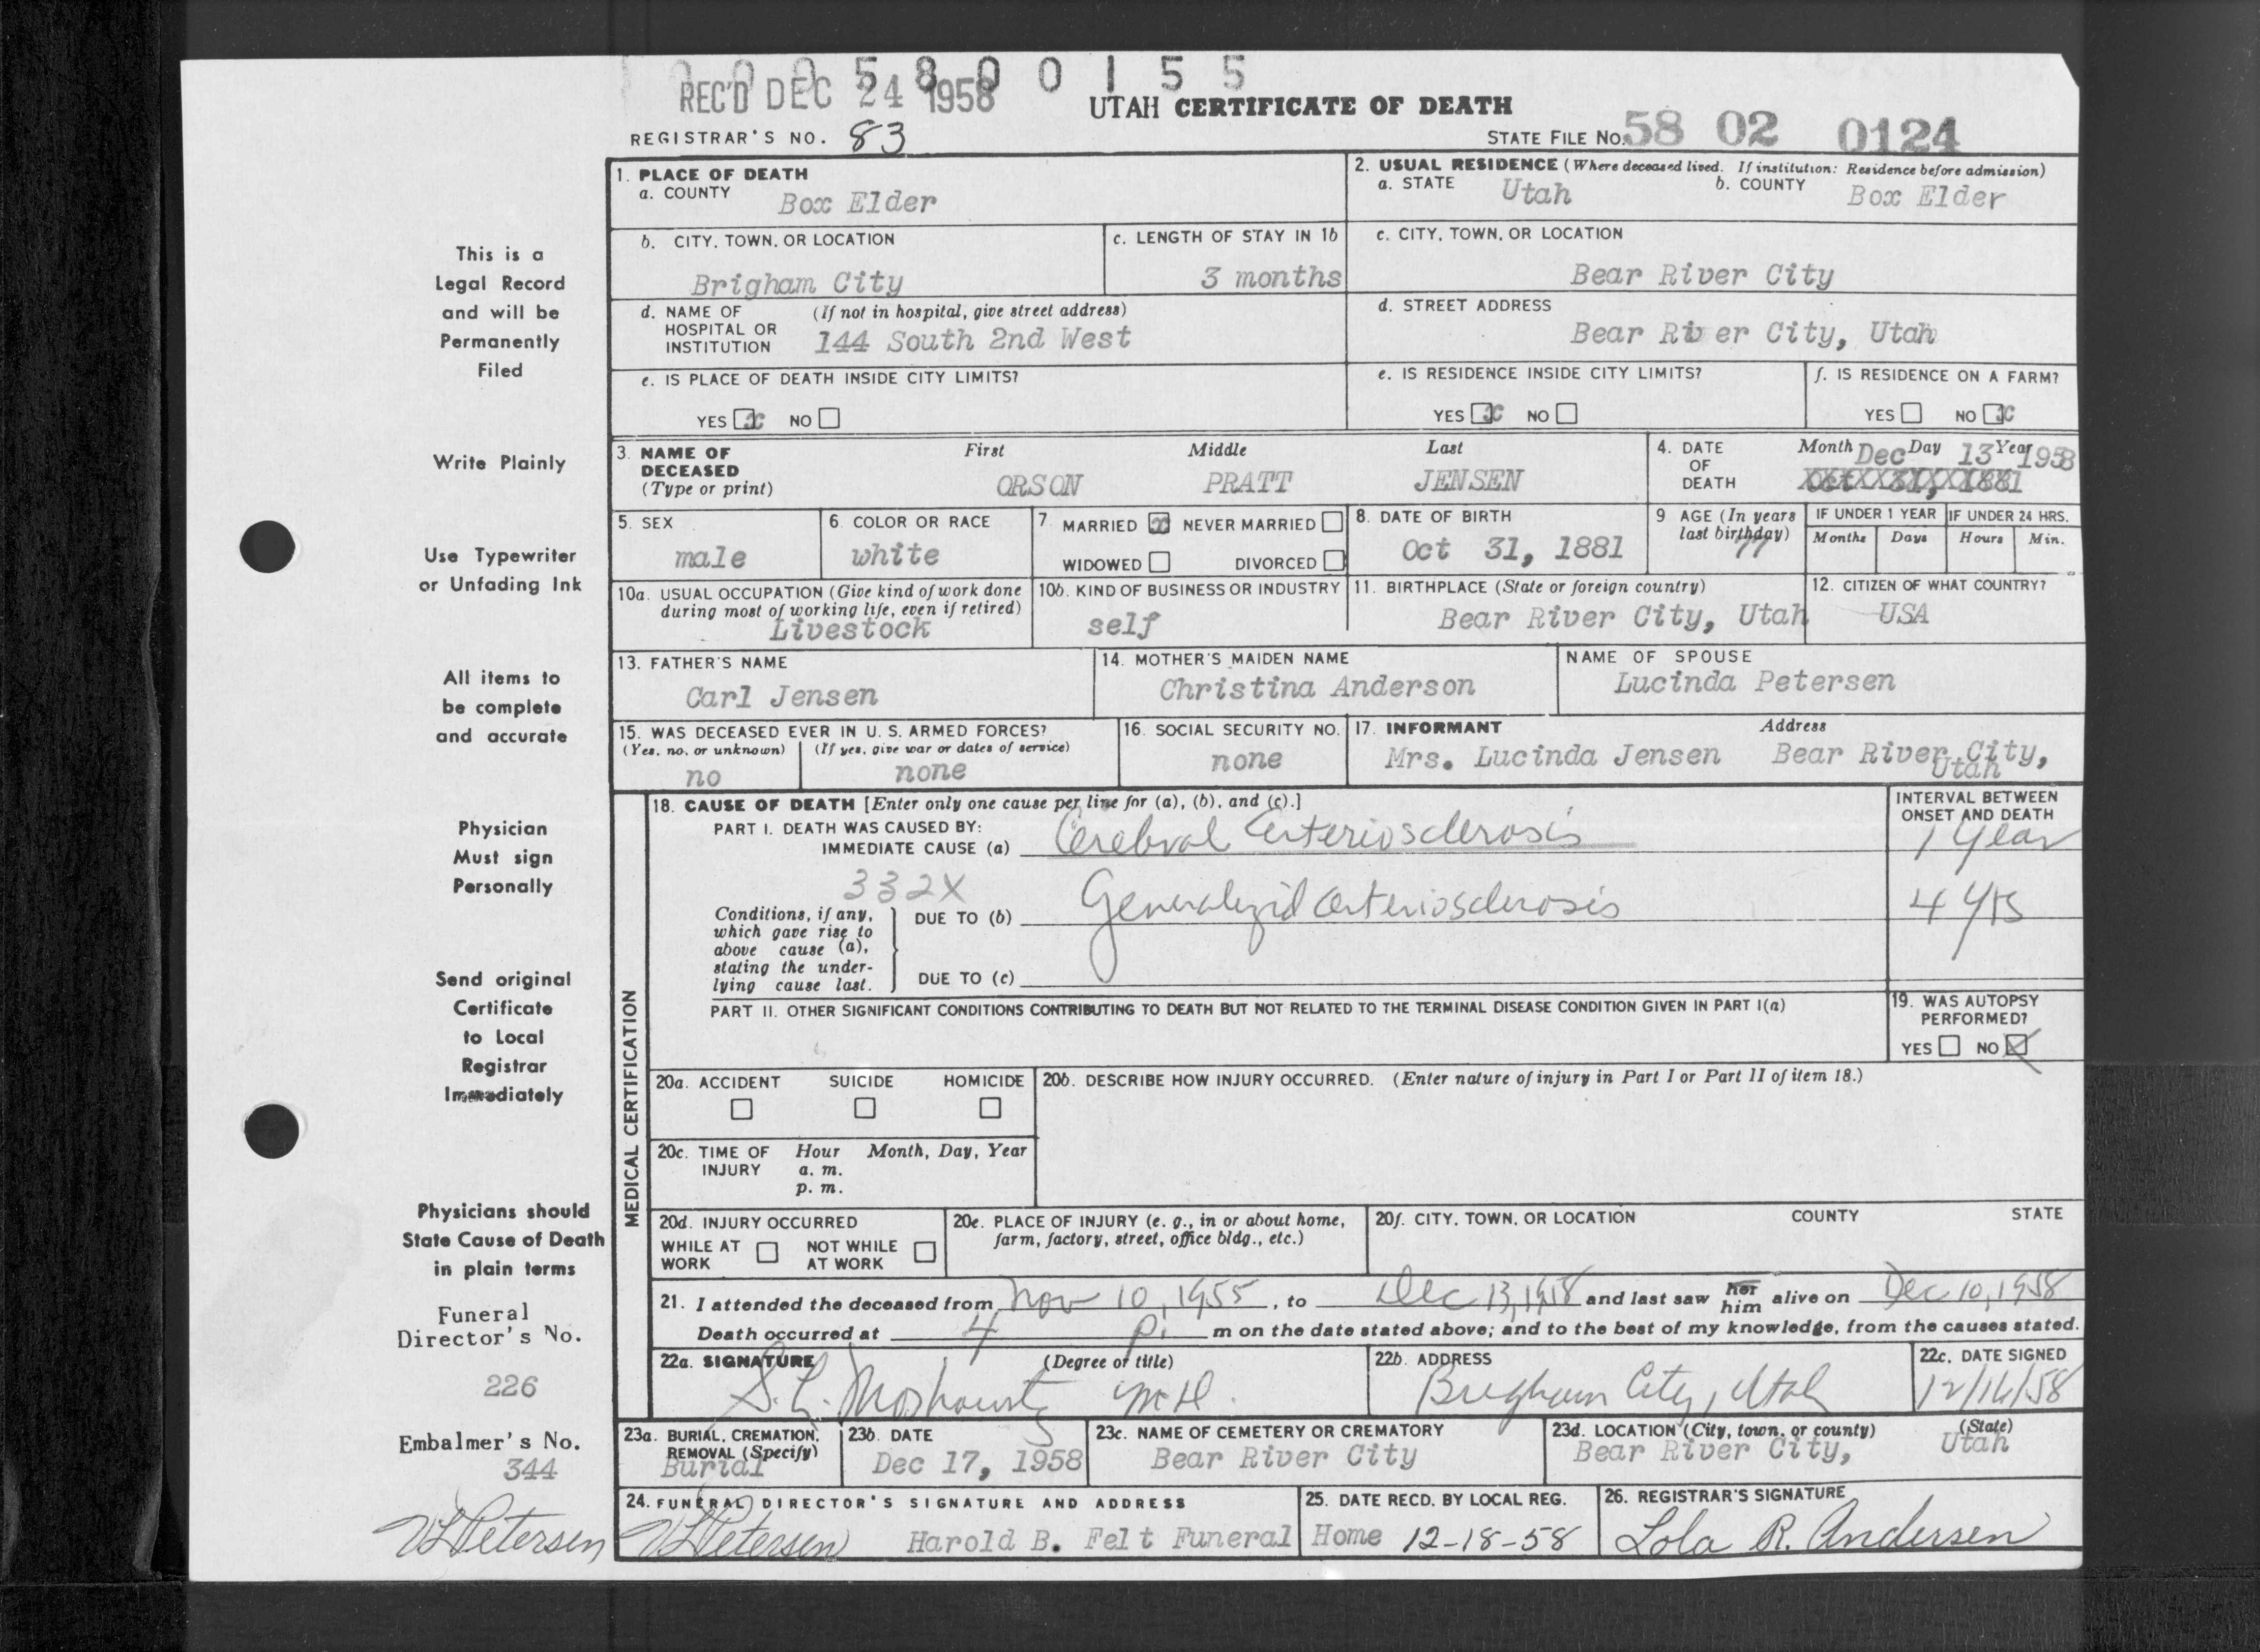 0 0 0 5 8 0 0 1 5 5
REC'D DEC 24 1958
UTAH CERTIFICATE OF DEATH
REGISTRAR'S NO. 83
STATE FILE NO. 58 02 0124
This is a
Legal Record
and will be
Permanently
Filed
Write Plainly
Use Typewriter
or Unfading Ink
All items to
be complete
and accurate
Physician
Must sign
Personally
Send original
Certificate
to Local
Registrar
Immediately
Physicians should
State Cause of Death
in plain terms
Funeral
Director's No.
226
Embalmer's No.
344
V L Petersen
1. PLACE OF DEATH
a. COUNTY Box Elder
2. USUAL RESIDENCE (Where deceased lived. If institution: Residence before admission)
a. STATE Utah b. COUNTY Box Elder
b. CITY, TOWN, OR LOCATION
Brigham City
c. LENGTH OF STAY IN 1b
3 months
c. CITY, TOWN, OR LOCATION
Bear River City
d. NAME OF HOSPITAL OR INSTITUTION (If not in hospital, give street address)
144 South 2nd West
d. STREET ADDRESS
Bear River City, Utah
e. IS PLACE OF DEATH INSIDE CITY LIMITS?
YES x NO
e. IS RESIDENCE INSIDE CITY LIMITS?
YES x NO
f. IS RESIDENCE ON A FARM?
YES NO x
3. NAME OF DECEASED (Type or print)
First Middle Last
ORSON PRATT JENSEN
4. DATE OF DEATH
Month Day Year
Dec 13 1958
Oct 31, 1881
5. SEX
male
6. COLOR OR RACE
white
7. MARRIED x NEVER MARRIED
WIDOWED DIVORCED
8. DATE OF BIRTH
Oct 31, 1881
9 AGE (In years last birthday)
77
IF UNDER 1 YEAR
Months Days
IF UNDER 24 HRS.
Hours Min.
10a. USUAL OCCUPATION (Give kind of work done during most of working life, even if retired)
Livestock
10b. KIND OF BUSINESS OR INDUSTRY
self
11. BIRTHPLACE (State or foreign country)
Bear River City, Utah
12. CITIZEN OF WHAT COUNTRY?
USA
13. FATHER'S NAME
Carl Jensen
14. MOTHER'S MAIDEN NAME
Christina Anderson
NAME OF SPOUSE
Lucinda Petersen
15. WAS DECEASED EVER IN U. S. ARMED FORCES?
(Yes, no, or unknown) (If yes, give war or dates of service)
no none
16. SOCIAL SECURITY NO.
none
17. INFORMANT Address
Mrs. Lucinda Jensen Bear River City,
Utah
MEDICAL CERTIFICATION
18. CAUSE OF DEATH [Enter only one cause per line for (a), (b), and (c).]
INTERVAL BETWEEN ONSET AND DEATH
PART I. DEATH WAS CAUSED BY:
IMMEDIATE CAUSE (a) Cerebral Arteriosclerosis 1 Year
332X
Conditions, if any, which gave rise to above cause (a), stating the underlying cause last.
DUE TO (b) Generalized arteriosclerosis 4 yrs
DUE TO (c)
PART II. OTHER SIGNIFICANT CONDITIONS CONTRIBUTING TO DEATH BUT NOT RELATED TO THE TERMINAL DISEASE CONDITION GIVEN IN PART I(a)
19. WAS AUTOPSY PERFORMED?
YES NO X
20a. ACCIDENT SUICIDE HOMICIDE
20b. DESCRIBE HOW INJURY OCCURRED. (Enter nature of injury in Part I or Part II of item 18.)
20c. TIME OF INJURY Hour Month, Day, Year
a. m.
p. m.
20d. INJURY OCCURRED
WHILE AT WORK NOT WHILE AT WORK
20e. PLACE OF INJURY (e. g., in or about home, farm, factory, street, office bldg., etc.)
20f. CITY, TOWN, OR LOCATION COUNTY STATE
21. I attended the deceased from Nov 10, 1955, to Dec 13, 1958 and last saw her him alive on Dec 10, 1958
Death occurred at 4 p. m on the date stated above; and to the best of my knowledge, from the causes stated.
22a. SIGNATURE (Degree or title)
S. L. Moskowitz M D.
22b. ADDRESS
Brigham City, Utah
22c. DATE SIGNED
12/16/58
23a. BURIAL, CREMATION, REMOVAL (Specify)
Burial
23b. DATE
Dec 17, 1958
23c. NAME OF CEMETERY OR CREMATORY
Bear River City
23d. LOCATION (City, town, or county) (State)
Bear River City, Utah
24. FUNERAL DIRECTOR'S SIGNATURE AND ADDRESS
V L Petersen Harold B. Felt Funeral Home
25. DATE RECD. BY LOCAL REG.
12-18-58
26. REGISTRAR'S SIGNATURE
Lola R. Andersen